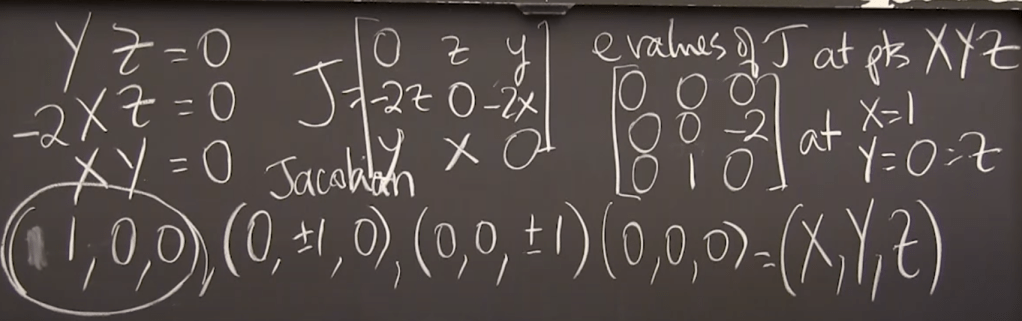 YZ = 0
-2XZ = 0
XY = 0
J = [0 z y
-2z 0 -2x
y x 0]
Jacobian
evalues of J at pts XYZ
[0 0 0
0 0 -2
0 1 0] at X=1
Y=0=Z
(1,0,0), (0,±1,0), (0,0,±1) (0,0,0) = (X,Y,Z)